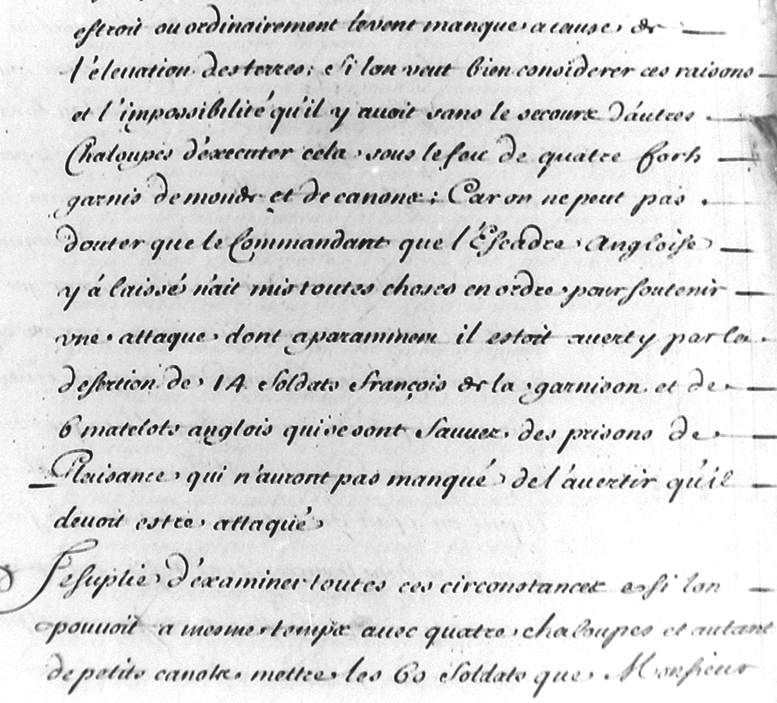 estroit ou ordinairement levent manque a cause de
l'élevation des terres; si lon veut bien considerer ces raisons
et l'impossibilité qu'il y auoit sans le secours d'autres
Chaloupes d'éxecuter cela sous le feu de quatre forts
garnis de monde et de canons; Car on ne peut pas
douter que le Commandant que l'Escadre Angloise
y á laissé n'ait mis toutes choses en ordre pour soutenir
vne attaque dont aparamment il estoit auerty par la
desertion de 14 soldats françois de la garnison et de
6 matelots anglois qui se sont sauuez des prisons de
Plaisance qui n'auront pas manqué de l'auertir qu'il
deuoit estre attaqué
Je suplie d'éxaminer toutes ces circonstances et si lon
pouuoit a mesme temps auec quatre chaloupes et autant
de petits canots mettre les 60 soldats que Monsieur